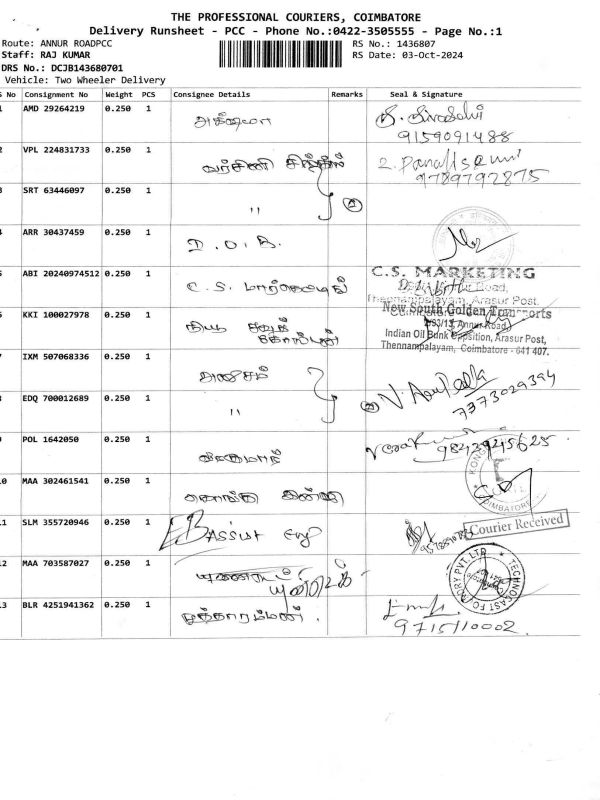 THE PROFESSIONAL COURIERS, COIMBATORE
Delivery Runsheet - PCC - Phone No.:0422-3505555 - Page No.:1
Route: ANNUR ROADPCC
RS No.: 1436807
Staff: RAJ KUMAR
RS Date: 03-Oct-2024
DRS No.: DCJB143680701
Vehicle: Two Wheeler Delivery
S No Consignment No Weight PCS Consignee Details Remarks Seal & Signature
1 AMD 29264219 0.250 1
9159091488
2 VPL 224831733 0.250 1 வர்சினி
9789792875
3 SRT 63446097 0.250 1 " ②
4 ARR 30437459 0.250 1 D.O.B.
5 ABI 20240974512 0.250 1 C.S. மார்க்கெடிங்
C.S. MARKETING
Road,
Thennampalayam, Arasur Post.
6 KKI 100027978 0.250 1 நியூ சவுத் கோல்டன்
New South Golden Transports
Annur Road,
Indian Oil Bunk Opposition, Arasur Post,
Thennampalayam, Coimbatore - 641 407.
7 IXM 507068336 0.250 1
8 EDQ 700012689 0.250 1 " ②
7373029394
9 POL 1642050 0.250 1
9842945625
10 MAA 302461541 0.250 1 கொங்கு
11 SLM 355720946 0.250 1 EB Assist Eng
Courier Received
12 MAA 703587027 0.250 1
TECHNOCAST FOUNDRY PVT LTD
13 BLR 4251941362 0.250 1 முத்தாரம்மன்
9715110002